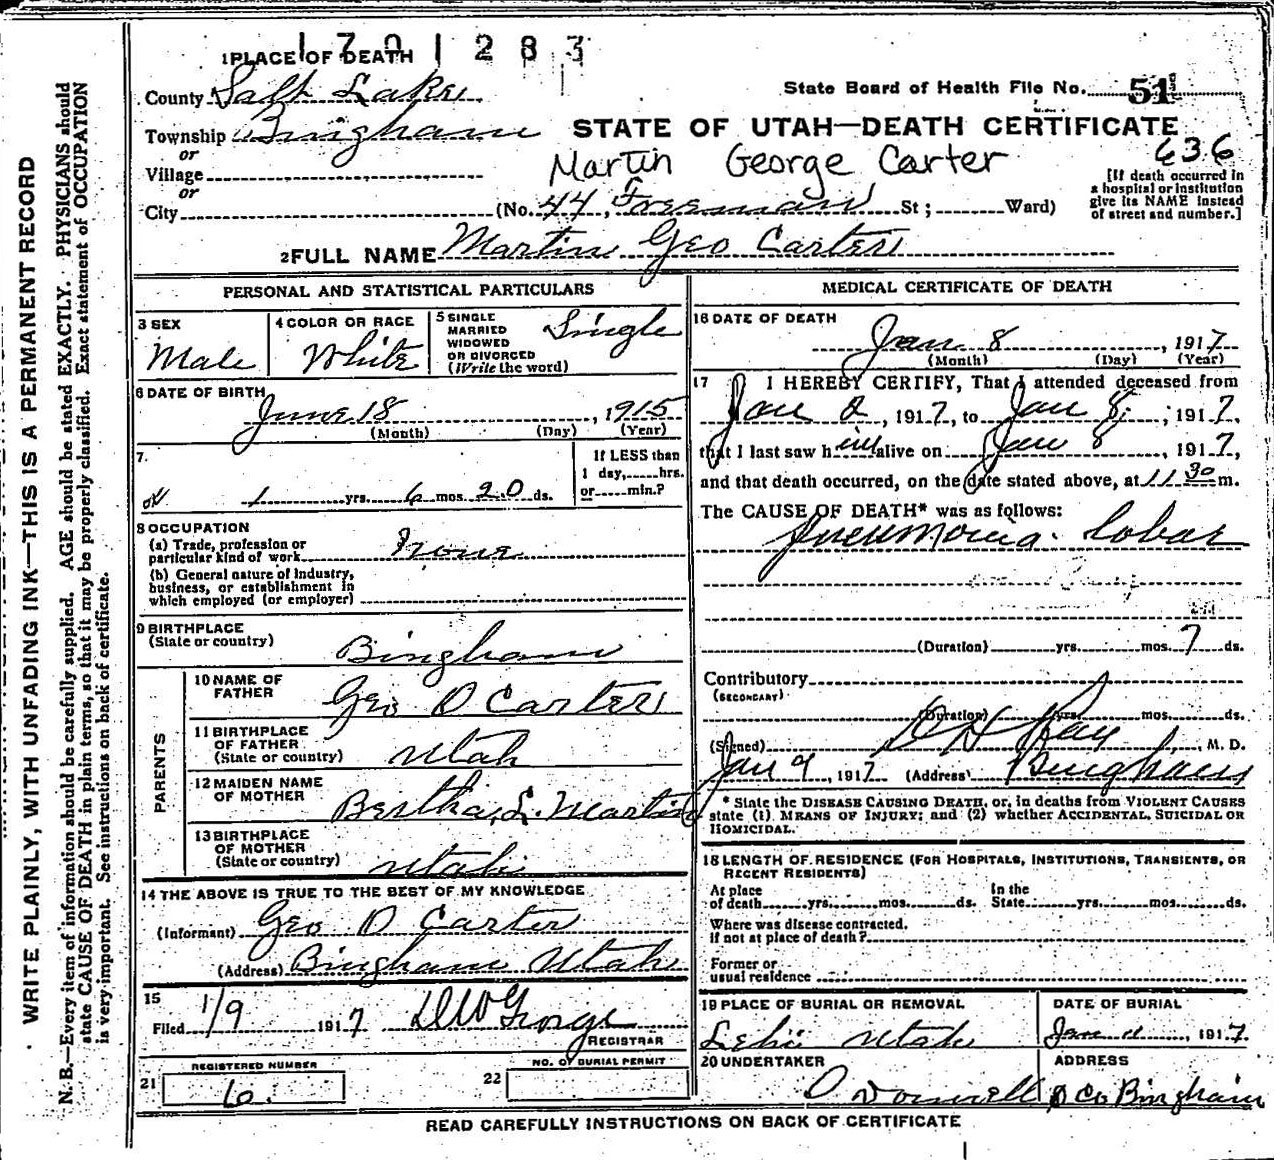 1701283
1 PLACE OF DEATH
County Salt Lake
State Board of Health File No. 51
Township Bingham
STATE OF UTAH—DEATH CERTIFICATE
636
or
Village
Martin George Carter
or
City (No. 44, Freeman St; Ward)
[If death occurred in
a hospital or institution
give its NAME instead
of street and number.]
2 FULL NAME Martin Geo Carter
PERSONAL AND STATISTICAL PARTICULARS
3 SEX
Male
4 COLOR OR RACE
White
5 SINGLE
MARRIED
WIDOWED
OR DIVORCED
(Write the word)
Single
6 DATE OF BIRTH
June 18, 1915
(Month) (Day) (Year)
7.
1 yrs. 6 mos. 20 ds.
If LESS than
1 day, hrs.
or min.?
8 OCCUPATION
(a) Trade, profession or
particular kind of work None
(b) General nature of Industry,
business, or establishment in
which employed (or employer)
9 BIRTHPLACE
(State or country)
Bingham
PARENTS
10 NAME OF
FATHER
Geo D Carter
11 BIRTHPLACE
OF FATHER
(State or country)
Utah
12 MAIDEN NAME
OF MOTHER
Bertha L. Martin
13 BIRTHPLACE
OF MOTHER
(State or country)
Utah
14 THE ABOVE IS TRUE TO THE BEST OF MY KNOWLEDGE
(Informant) Geo D Carter
(Address) Bingham Utah
15
Filed 1/9 1917
REGISTRAR
REGISTERED NUMBER
21 6.
NO. OF BURIAL PERMIT
22
MEDICAL CERTIFICATE OF DEATH
16 DATE OF DEATH
Jan 8, 1917
(Month) (Day) (Year)
17 I HEREBY CERTIFY, That I attended deceased from
Jan 2, 1917, to Jan 8, 1917,
that I last saw him alive on Jan 8 1917,
and that death occurred, on the date stated above, at 11 30 m.
The CAUSE OF DEATH* was as follows:
Pneumonia. Lobar
(Duration) yrs. mos. 7 ds.
Contributory
(SECONDARY)
(Duration) yrs. mos. ds.
(Signed) D H Ray, M. D.
Jan 9, 1917 (Address) Bingham
* State the DISEASE CAUSING DEATH, or, in deaths from VIOLENT CAUSES
state (1) MEANS OF INJURY; and (2) whether ACCIDENTAL, SUICIDAL OR
HOMICIDAL.
18 LENGTH OF RESIDENCE (FOR HOSPITALS, INSTITUTIONS, TRANSIENTS, OR
RECENT RESIDENTS)
At place
of death yrs. mos. ds.
In the
State yrs. mos. ds.
Where was disease contracted,
if not at place of death?
Former or
usual residence
19 PLACE OF BURIAL OR REMOVAL
Lehi Utah
DATE OF BURIAL
Jan 11, 1917
20 UNDERTAKER
O Donnell & Co
ADDRESS
Bingham
READ CAREFULLY INSTRUCTIONS ON BACK OF CERTIFICATE
WRITE PLAINLY, WITH UNFADING INK—THIS IS A PERMANENT RECORD
N. B.—Every item of information should be carefully supplied. AGE should be stated EXACTLY. PHYSICIANS should
state CAUSE OF DEATH in plain terms, so that it may be properly classified. Exact statement of OCCUPATION
is very important. See instructions on back of certificate.